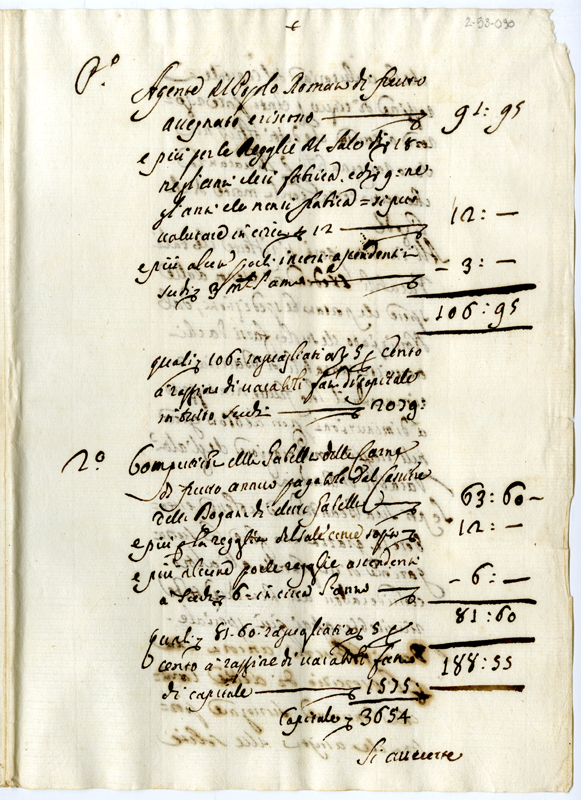 2-53-030
P.o Agente del Popolo Romano di frutto
annuo 91: 95
e più per le Regaglie del Sale di 18
negl'anni che si fabrica, e di 9 ne
gl'anni che non si fabrica =
valutate in circa 12 12: —
e più alcun' incerti ascendenti
scudi 3 - 3: —
106: 95
quali 106: ragguagliati a 5 per cento
a raggione di vacabili fanno di capitale
in tutto Scudi 2079:
2o Computista della Gabella della Carne
di frutto annuo pagabile dal
della Dogana di detta Gabella 63: 60 -
e più per la regaglia del sale come sopra 12: —
e più alcune regaglie ascendenti
a Scudi 6 in circa l'anno - 6: —
81: 60
quali 81-60: ragguagliati a 5 per
cento a raggione di vacabili fanno 188: 55
di capitale 1575
Capitale 3654
Si avverte